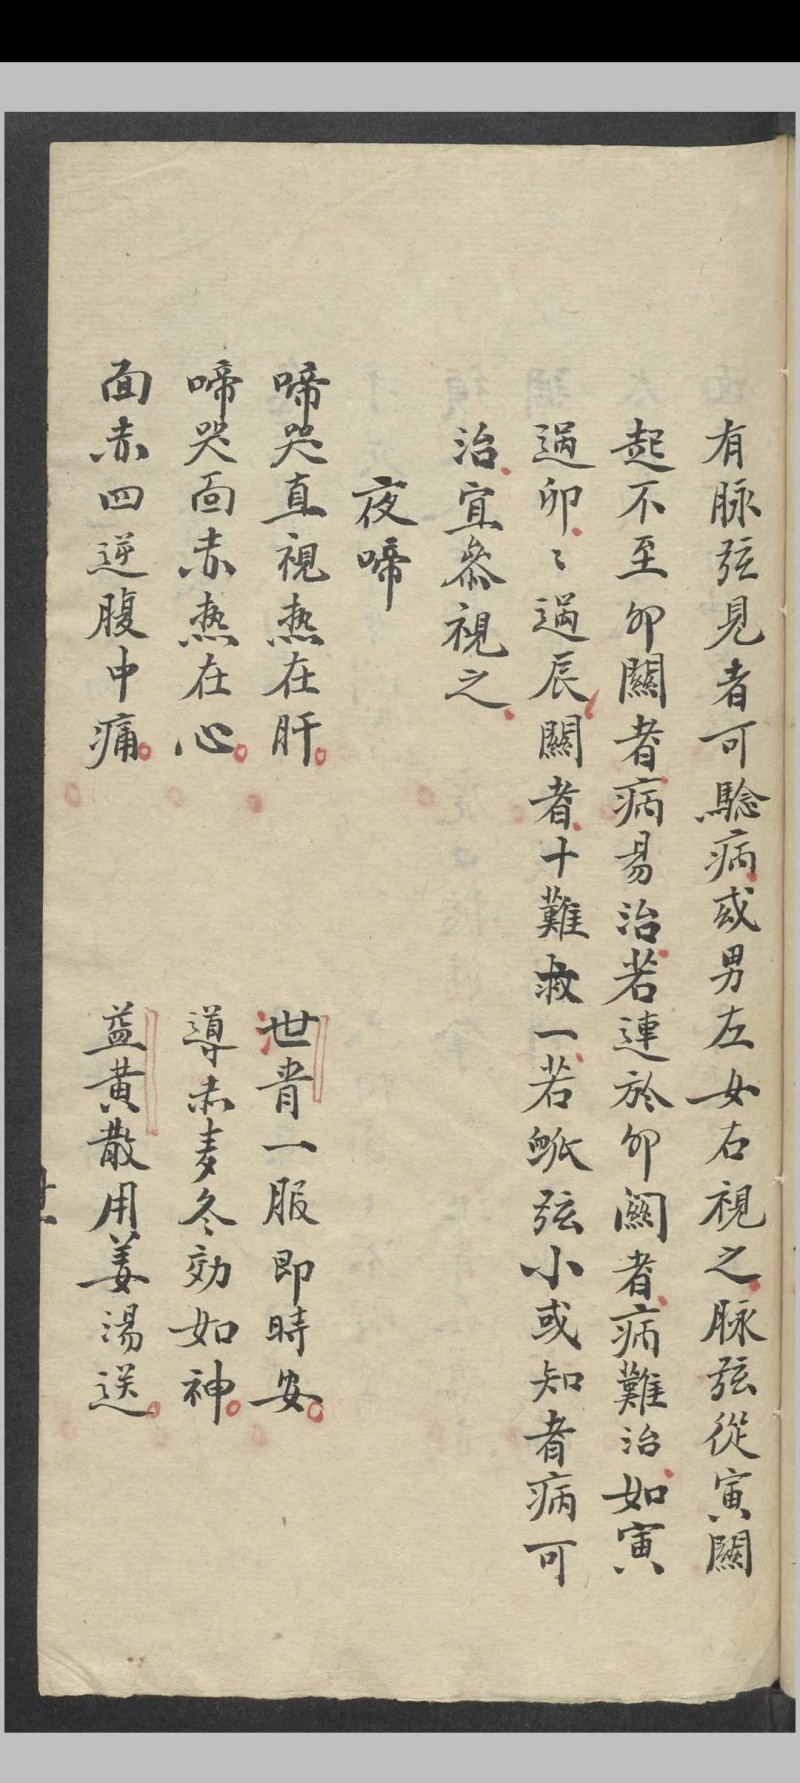 有脉弦見者可騐病或男左女右視之脉弦從寅關
起不至卯關者病易治若連於卯關者病難治如寅
過卯〻過辰關者十難救一若脈弦小或知者病可
治宜叅視之
夜啼
啼哭直視热在肝 世胥一服即時安
啼哭面赤热在心 導赤麦冬効如神
面赤四逆腹中痛 益黄散用姜湯送